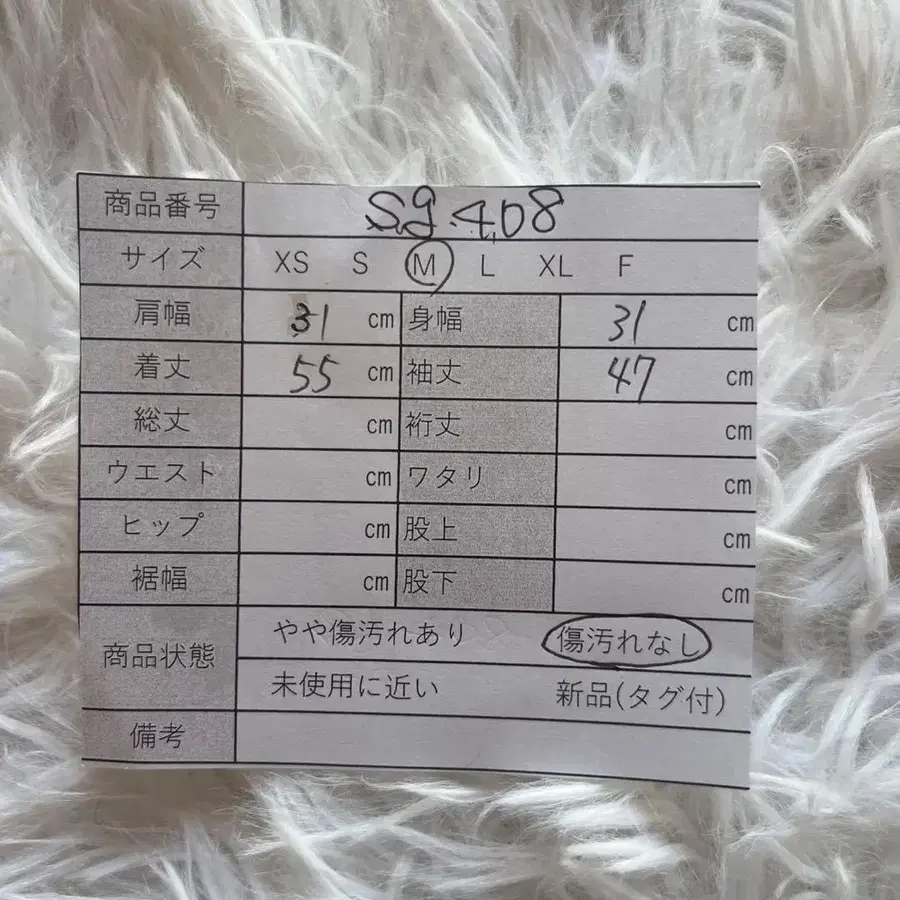 商品番号 Sg.408
サイズ XS S M L XL F
肩幅 31 cm 身幅 31 cm
着丈 55 cm 袖丈 47 cm
総丈 cm 裄丈 cm
ウエスト cm ワタリ cm
ヒップ cm 股上 cm
裾幅 cm 股下 cm
商品状態 やや傷汚れあり 傷汚れなし
未使用に近い 新品(タグ付)
備考